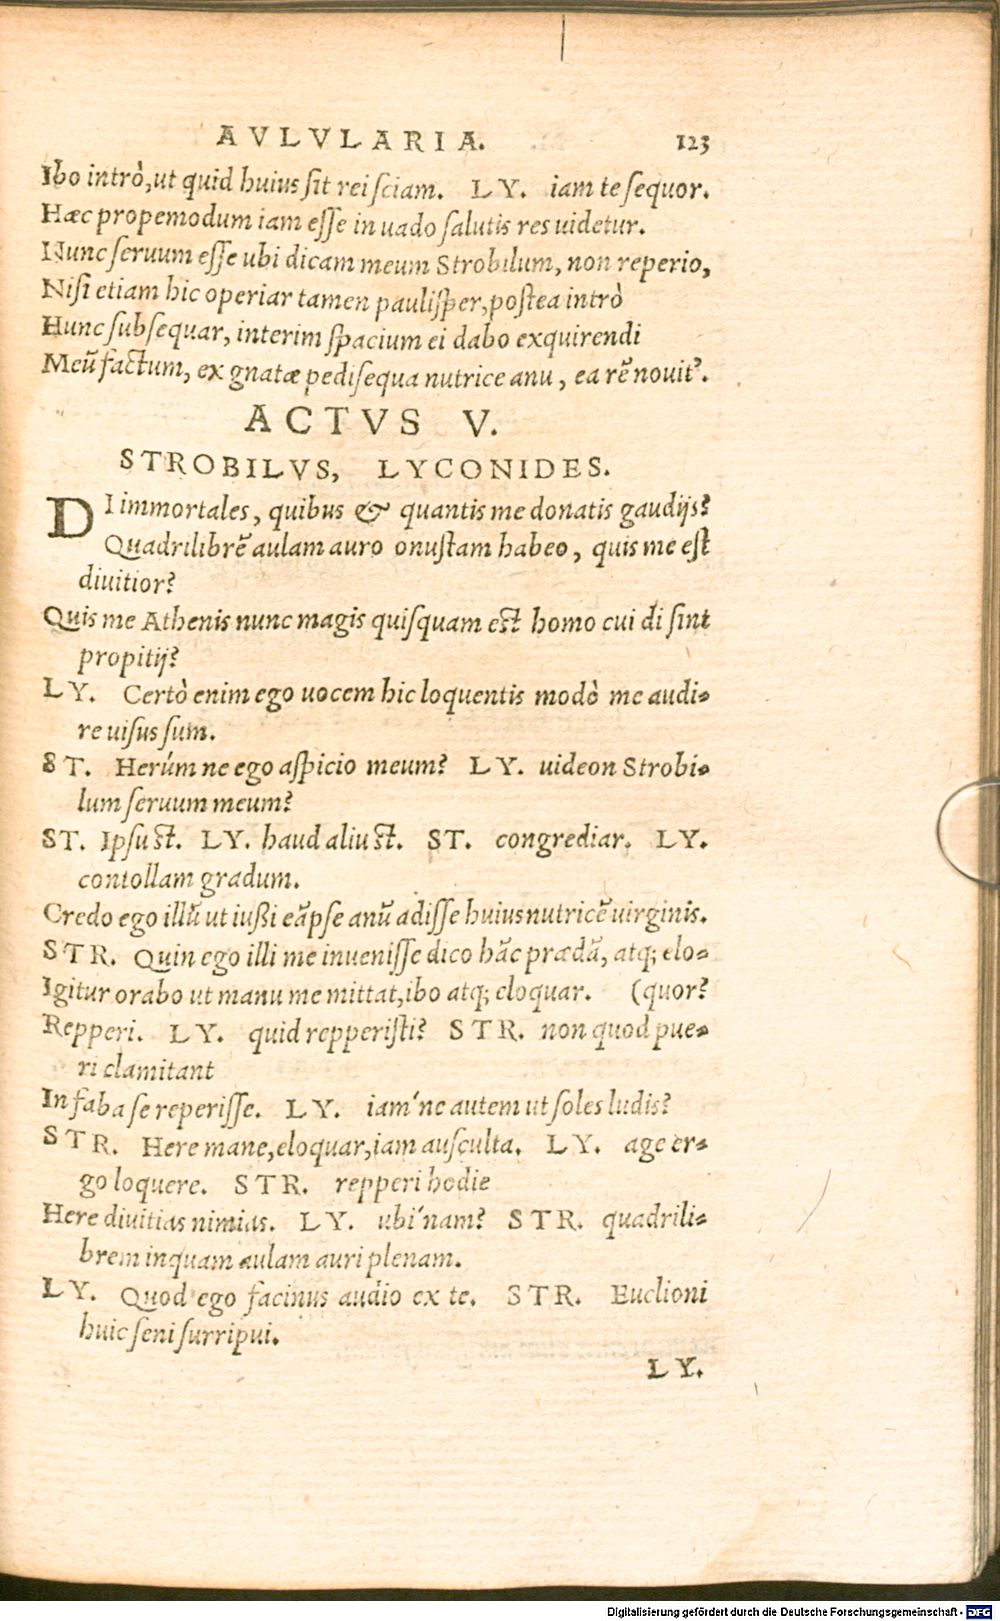 AVLVLARIA. 123
Ibo intrò, ut quid huius sit rei sciam. LY. iam te sequor.
Hæc propemodum iam esse in uado salutis res uidetur.
Nunc seruum esse ubi dicam meum Strobilum, non reperio,
Nisi etiam hic operiar tamen paulisper, postea intrò
Hunc subsequar, interim spacium ei dabo exquirendi
Meũ factum, ex gnatæ pedisequa nutrice anu, ea rẽ nouit?.
ACTVS V.
STROBILVS, LYCONIDES.
DI immortales, quibus & quantis me donatis gaudijs?
Quadrilibrẽ aulam auro onustam habeo, quis me est
diuitior?
Quis me Athenis nunc magis quisquam est homo cui di sint
propitij?
LY. Certò enim ego uocem hic loquentis modò me audi-
re uisus sum.
ST. Herúm ne ego aspicio meum? LY. uideon Strobi-
lum seruum meum?
ST. Ipsust. LY. haud aliust. ST. congrediar. LY.
contollam gradum.
Credo ego illũ ut iußi eãpse anũ adisse huius nutricẽ uirginis.
STR. Quin ego illi me inuenisse dico hãc prædã, atq; elo-
Igitur orabo ut manu me mittat, ibo atq; eloquar. (quor?
Repperi. LY. quid repperisti? STR. non quod pue-
ri clamitant
In faba se reperisse. LY. iam'ne autem ut soles ludis?
STR. Here mane, eloquar, iam ausculta. LY. age er-
go loquere. STR. repperi hodie
Here diuitias nimias. LY. ubi'nam? STR. quadrili-
brem inquam aulam auri plenam.
LY. Quod ego facinus audio ex te. STR. Euclioni
huic seni surripui.
LY.
Digitalisierung gefördert durch die Deutsche Forschungsgemeinschaft - DFG